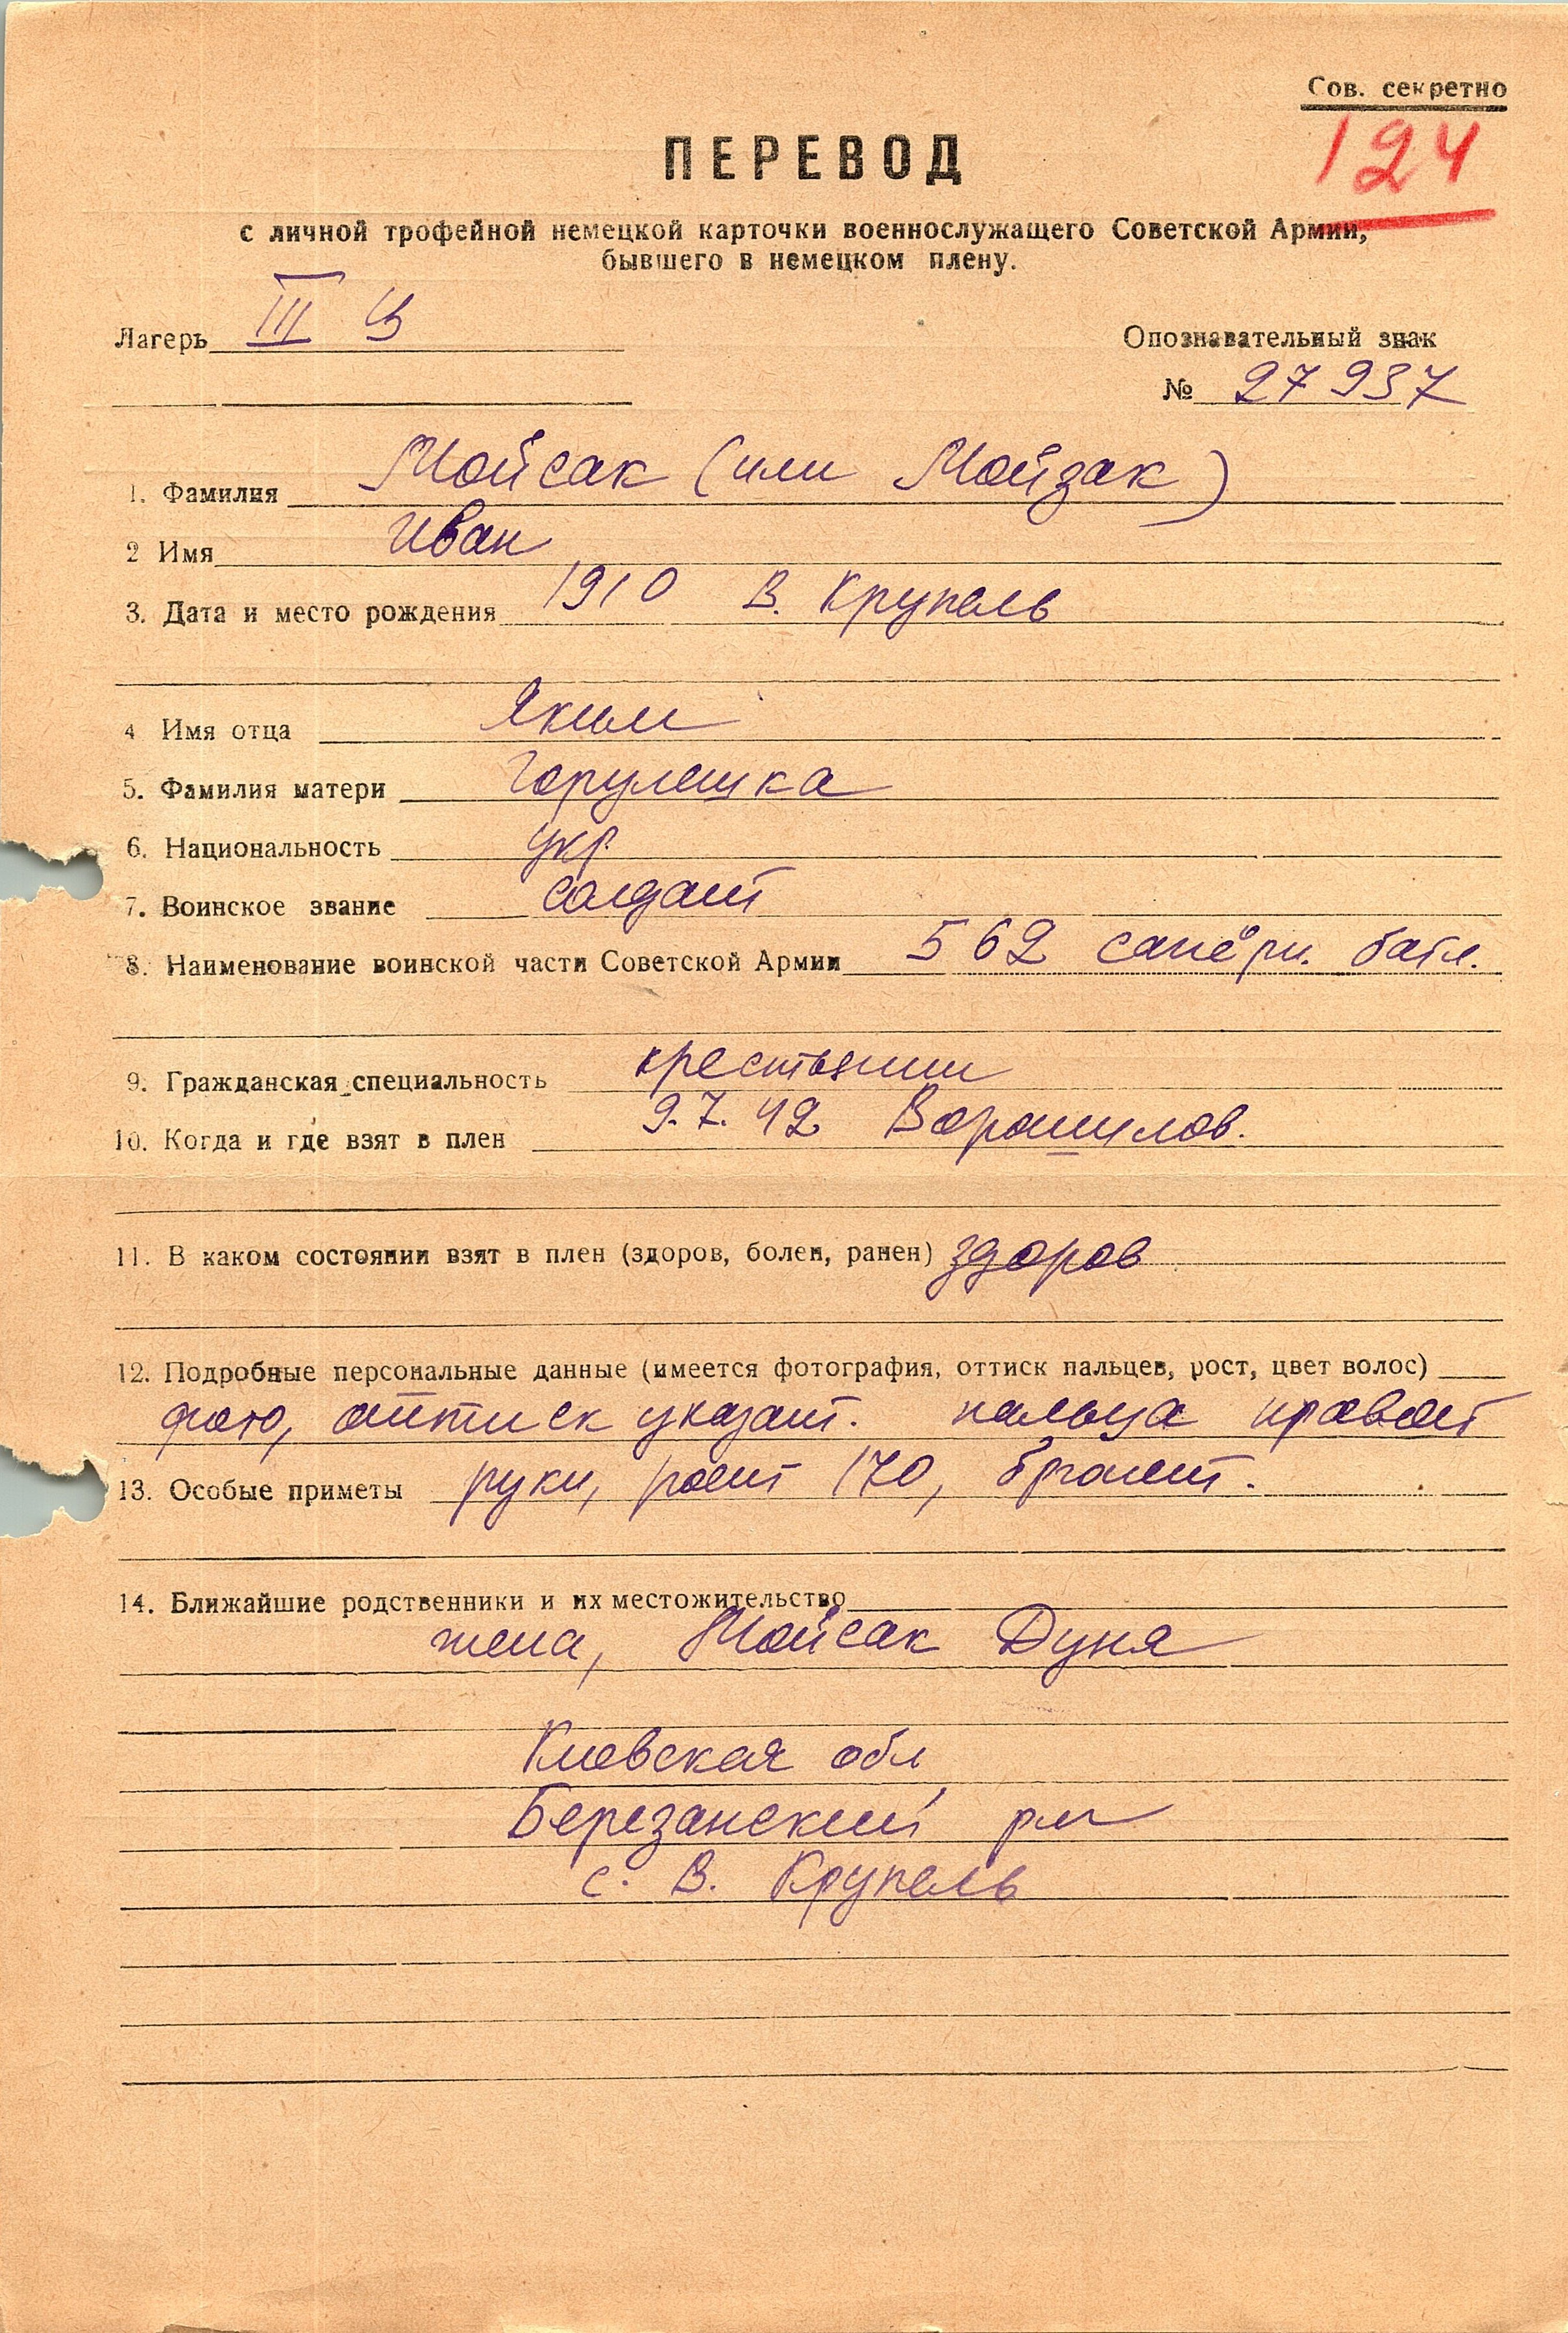 Сов. секретно
124
ПЕРЕВОД
с личной трофейной немецкой карточки военнослужащего Советской Армии,
бывшего в немецком плену.
Лагерь III
Опознавательный знак
№ 27937
1. Фамилия Мойсак (или Мойзак)
2 Имя Иван
3. Дата и место рождения 1910 В. Крупель
4 Имя отца Яким
5. Фамилия матери Горулешка
6. Национальность укр.
7. Воинское звание солдат
8. Наименование воинской части Советской Армии 562 сапёрн. батл.
9. Гражданская специальность крестьянин
10. Когда и где взят в плен 9.7.42 Ворошилов.
11. В каком состоянии взят в плен (здоров, болен, ранен) здоров
12. Подробные персональные данные (имеется фотография, оттиск пальцев, рост, цвет волос)
фото, оттиск указат. пальца правой
13. Особые приметы руки, рост 170, брюнет.
14. Ближайшие родственники и их местожительство
жена, Мойсак Дуня
Киевская обл
Березанский
с. В. Крупель